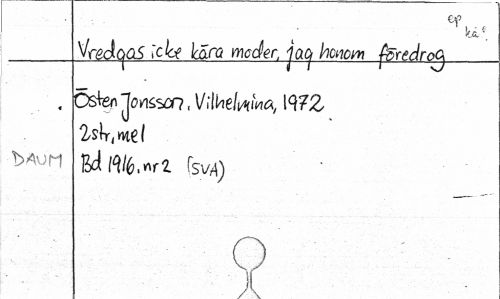 ep
kä
Vredgas icke kära moder, jag honom föredrog
Östen Jonsson, Vilhelmina, 1972
2str, mel
DAUM Bd 1916. nr 2 (SVA)